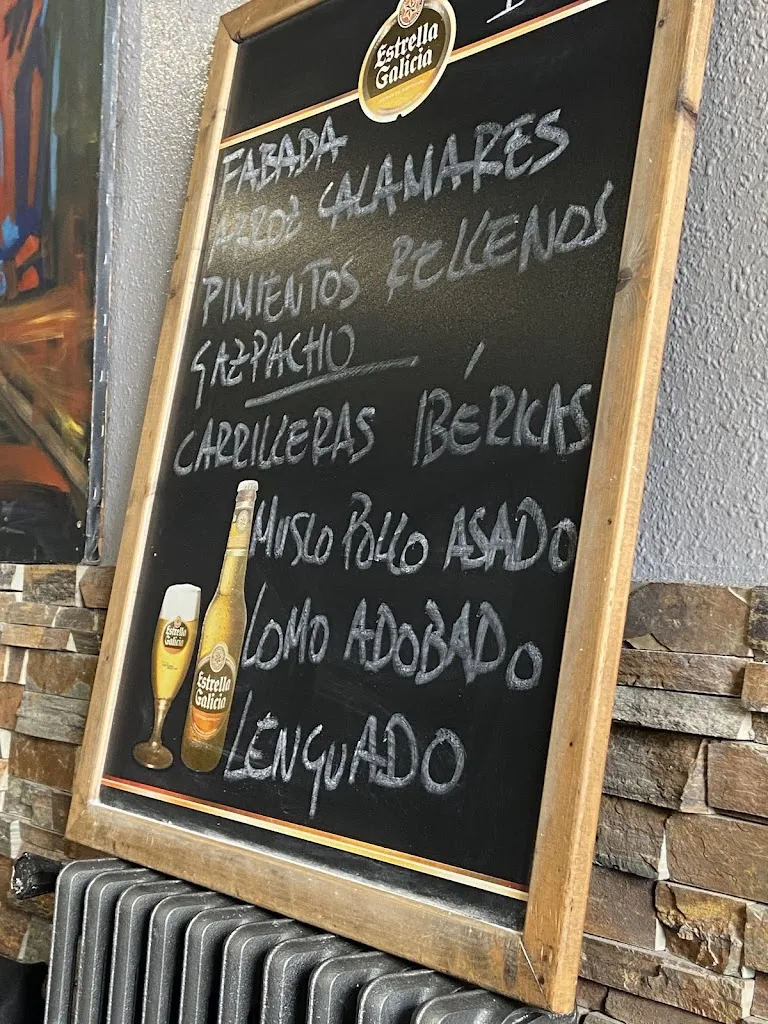 Estrella
Galicia
FABADA
ARROZ CALAMARES
PIMIENTOS RELLENOS
GAZPACHO
CARRILLERAS IBÉRICAS
MUSLO POLLO ASADO
LOMO ADOBADO
LENGUADO
Estrella
Galicia
Estrella
Galicia